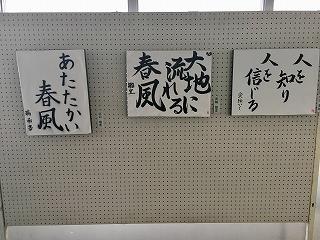 あたたかい
春風
大地に
流れる
春風
人を知り
人を
信じる